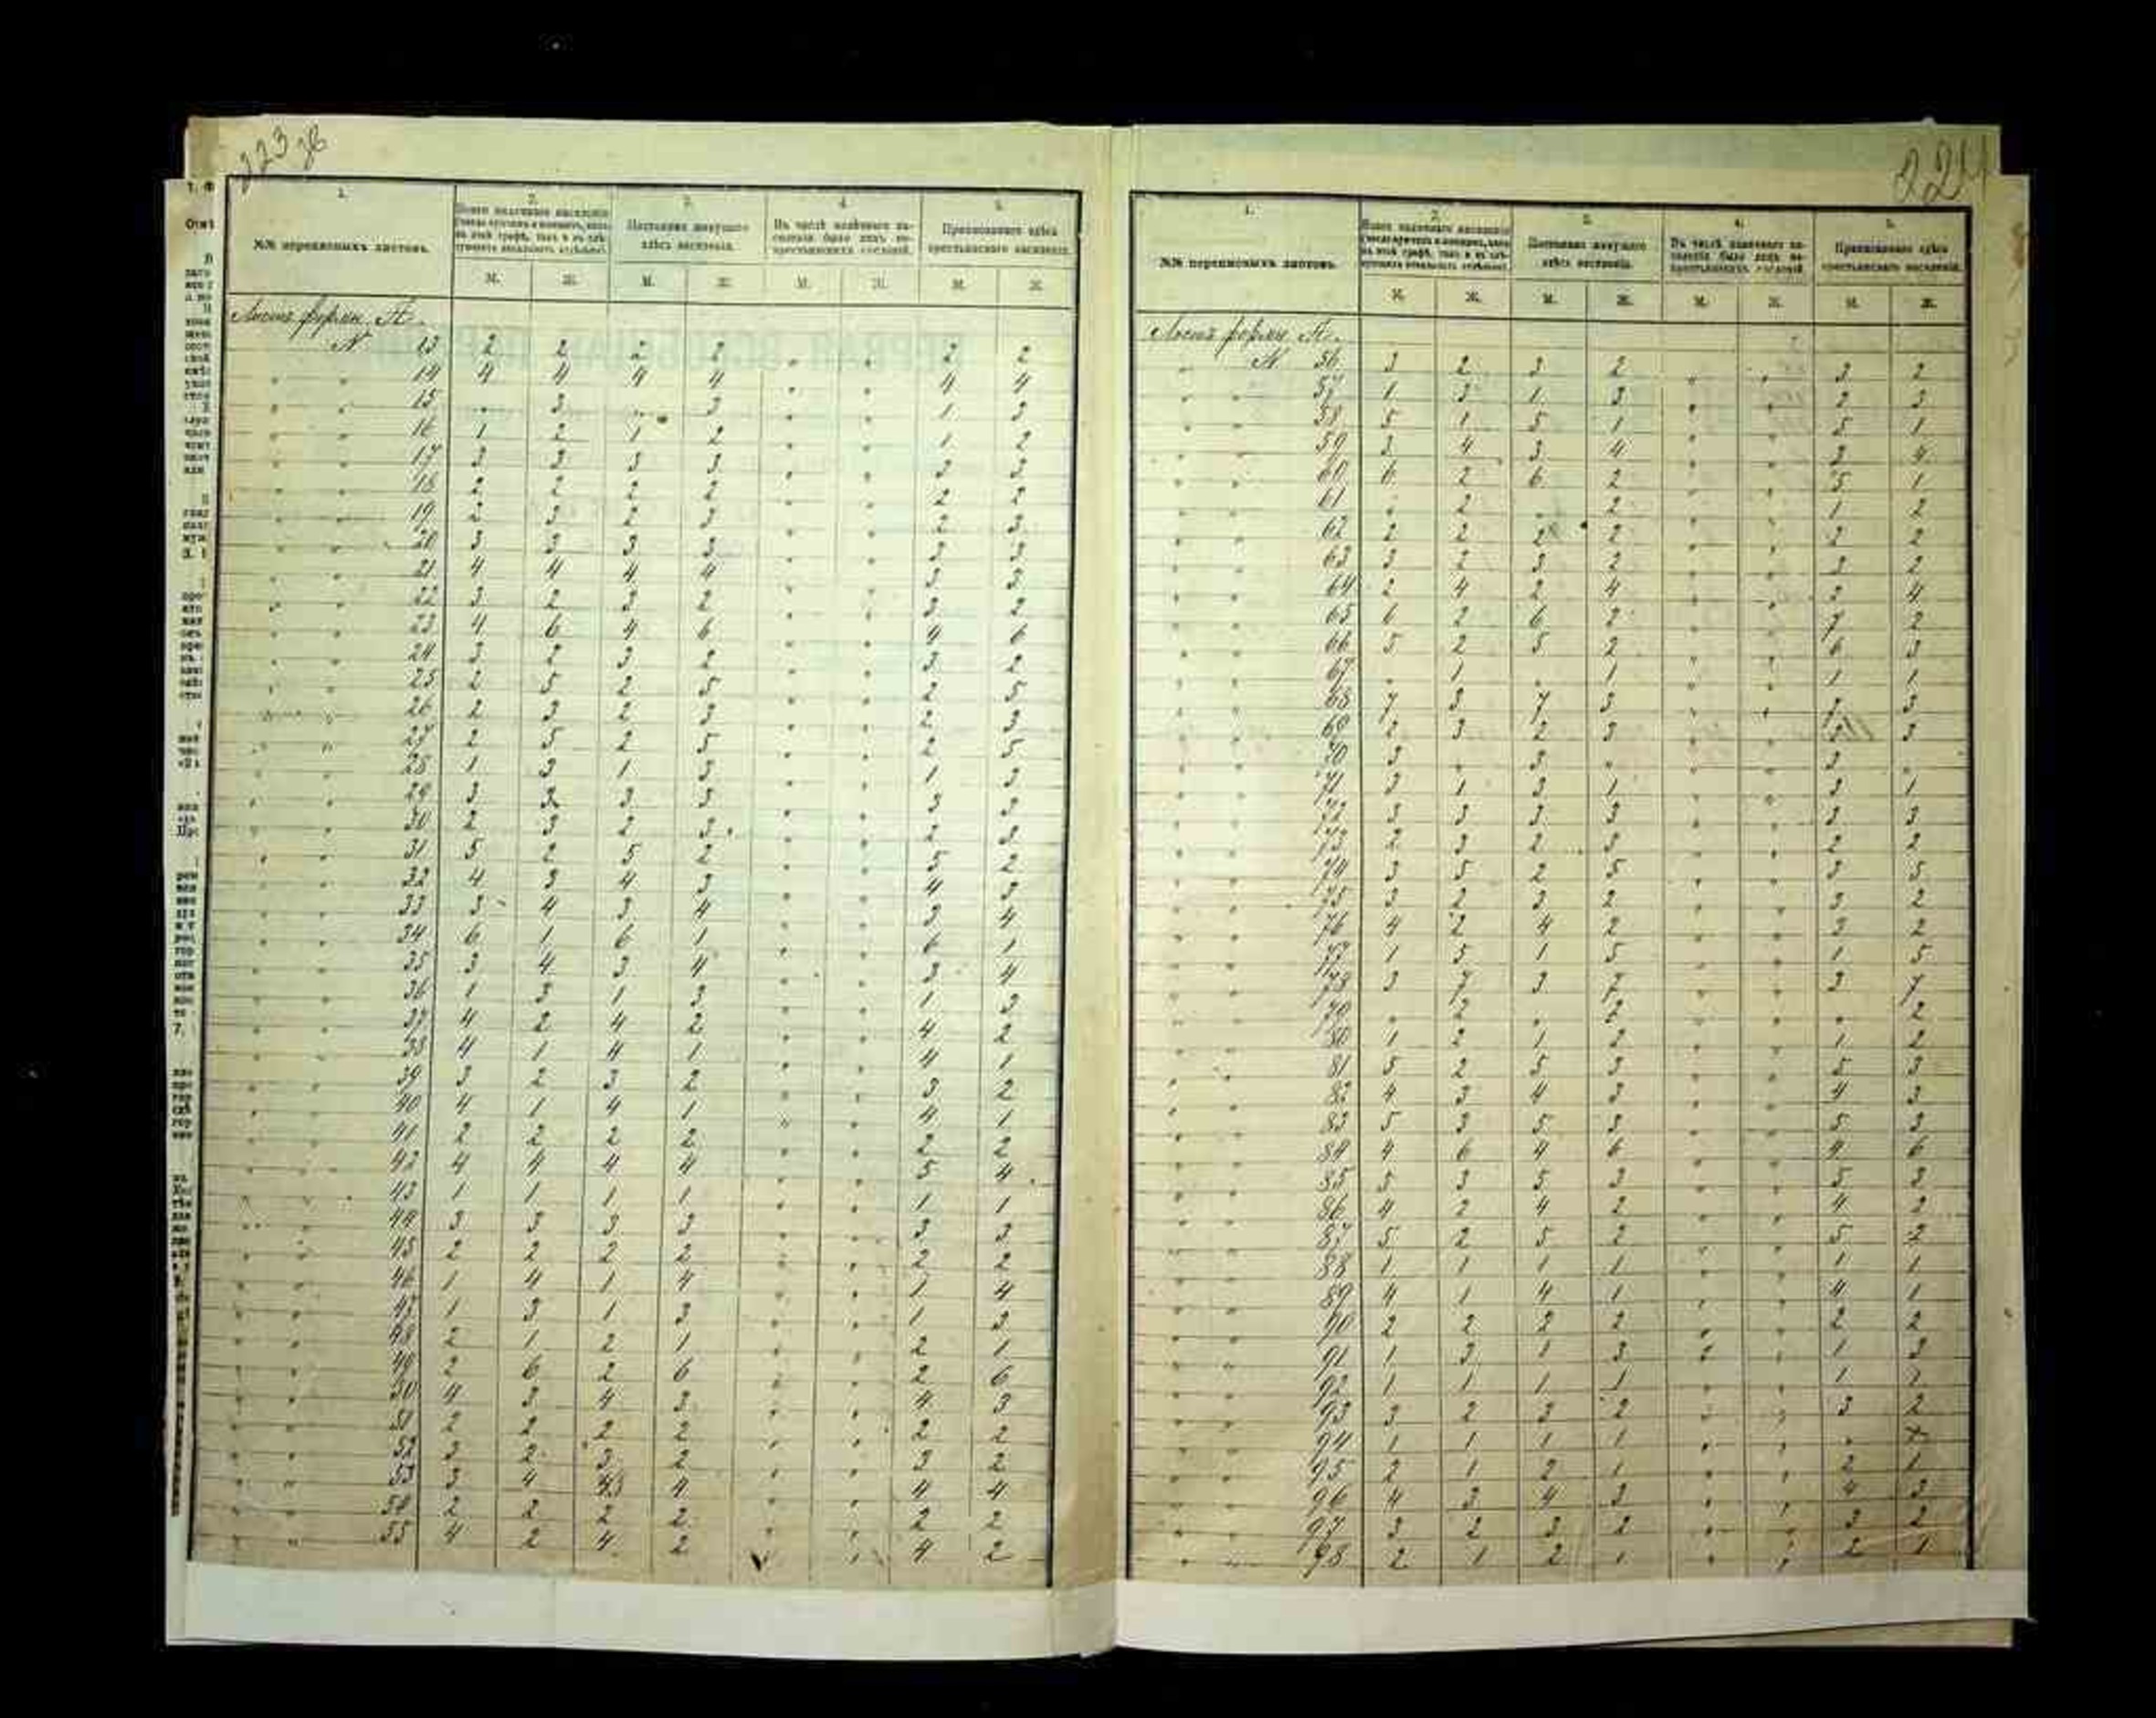 223 зв
1. 2. 3. 4. 5.
№№ переписныхъ листовъ.
Всего наличнаго населенія
Постоянно живущаго здѣсь населенія.
Въ числѣ наличнаго населенія было лицъ некрестьянскихъ сословій.
Приписаннаго здѣсь крестьянскаго населенія.
М. Ж. М. Ж. М. Ж. М. Ж.
Листъ формы А.
№ 13 2 2 2 2 " " 2 2
" " 14 4 4 4 4 " " 4 4
" " 15 " 3 " 3 " " 1 3
" " 16 1 2 1 2 " " 1 2
" " 17 3 3 3 3 " " 3 3
" " 18 2 2 2 2 " " 2 2
" " 19 2 3 2 3 " " 2 3
" " 20 3 3 3 3 " " 3 3
" " 21 4 4 4 4 " " 3 3
" " 22 3 2 3 2 " " 3 2
" " 23 4 6 4 6 " " 4 6
" " 24 3 2 3 2 " " 3 2
" " 25 2 5 2 5 " " 2 5
" " 26 2 3 2 3 " " 2 3
" " 27 2 5 2 5 " " 2 5
" " 28 1 3 1 3 " " 1 3
" " 29 3 3 3 3 " " 3 3
" " 30 2 3 2 3 " " 2 3
" " 31 5 2 5 2 " " 5 2
" " 32 4 3 4 3 " " 4 3
" " 33 3 4 3 4 " " 3 4
" " 34 6 1 6 1 " " 6 1
" " 35 3 4 3 4 " " 3 4
" " 36 1 3 1 3 " " 1 3
" " 37 4 2 4 2 " " 4 2
" " 38 4 1 4 1 " " 4 1
" " 39 3 2 3 2 " " 3 2
" " 40 4 1 4 1 " " 4 1
" " 41 2 2 2 2 " " 2 2
" " 42 4 4 4 4 " " 5 4
" " 43 1 1 1 1 " " 1 1
" " 44 3 3 3 3 " " 3 3
" " 45 2 2 2 2 " " 2 2
" " 46 1 4 1 4 " " 1 4
" " 47 1 3 1 3 " " 1 3
" " 48 2 1 2 1 " " 2 1
" " 49 2 6 2 6 " " 2 6
" " 50 4 3 4 3 " " 4 3
" " 51 2 2 2 2 " " 2 2
" " 52 3 2 3 2 " " 3 2
" " 53 3 4 3 4 " " 4 4
" " 54 2 2 2 2 " " 2 2
" " 55 4 2 4 2 " " 4 2
224
1. 2. 3. 4. 5.
№№ переписныхъ листовъ.
Всего наличнаго населенія
Постоянно живущаго здѣсь населенія.
Въ числѣ наличнаго населенія было лицъ некрестьянскихъ сословій
Приписаннаго здѣсь крестьянскаго населенія.
М. Ж. М. Ж. М. Ж. М. Ж.
Листъ формы А.
" № 56 3 2 3 2 " " 3 2
" " 57 1 3 1 3 " " 2 3
" " 58 5 1 5 1 " " 5 1
" " 59 3 4 3 4 " " 3 4
" " 60 6 2 6 2 " " 5 1
" " 61 " 2 " 2 " " 1 2
" " 62 2 2 2 2 " " 2 2
" " 63 3 2 3 2 " " 3 2
" " 64 2 4 2 4 " " 2 4
" " 65 6 2 6 2 " " 7 2
" " 66 5 2 5 2 " " 6 3
" " 67 " 1 " 1 " " 1 1
" " 68 7 3 7 3 " " 7 3
" " 69 2 3 2 3 " " 3 3
" " 70 3 " 3 " " " 3 "
" " 71 3 1 3 1 " " 3 1
" " 72 3 3 3 3 " " 3 3
" " 73 2 3 2 3 " " 2 2
" " 74 3 5 2 5 " " 3 5
" " 75 3 2 3 2 " " 3 2
" " 76 4 2 4 2 " " 3 2
" " 77 1 5 1 5 " " 1 5
" " 78 3 7 3 7 " " 3 7
" " 79 " 2 " 2 " " " 2
" " 80 1 2 1 2 " " 1 2
" " 81 5 2 5 3 " " 5 3
" " 82 4 3 4 3 " " 4 3
" " 83 5 3 5 3 " " 5 3
" " 84 4 6 4 6 " " 4 6
" " 85 5 3 5 3 " " 5 3
" " 86 4 2 4 2 " " 4 2
" " 87 5 2 5 2 " " 5 2
" " 88 1 1 1 1 " " 1 1
" " 89 4 1 4 1 " " 4 1
" " 90 2 2 2 2 " " 2 2
" " 91 1 3 1 3 " " 1 3
" " 92 1 1 1 1 " " 1 1
" " 93 3 2 3 2 " " 3 2
" " 94 1 1 1 1 " " "
" " 95 2 1 2 1 " " 2 1
" " 96 4 3 4 3 " " 4 3
" " 97 3 2 3 2 " " 3 2
" " 98 2 1 2 1 " " 2 1